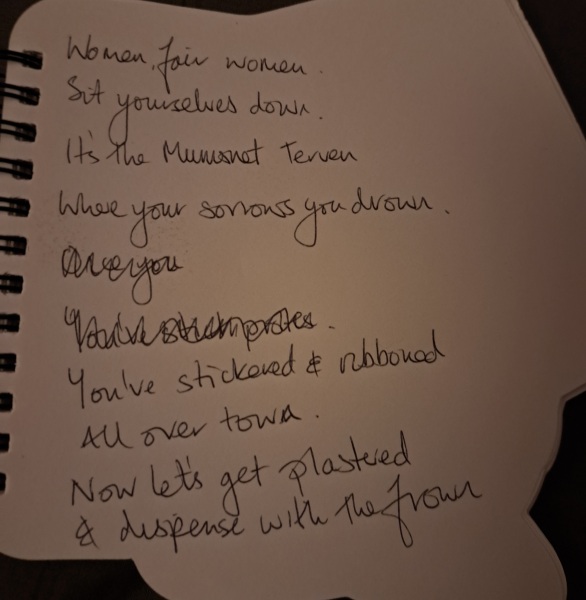 Women, fair women.
Sit yourselves down.
It's the Mumsnet Terven
Where your sorrows you drown.
Are you
You've
You've stickered & ribboned
All over town.
Now let's get plastered
& dispense with the frown